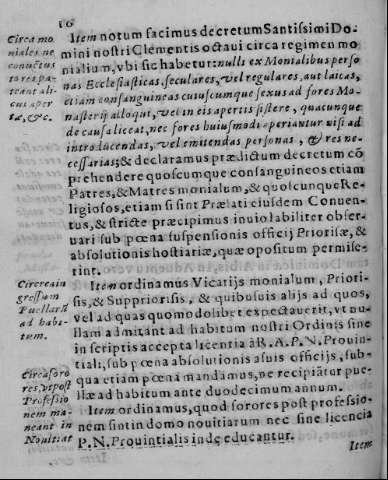 10
Circa mo
niales ne
conuctus
tores pa-
teant ali-
cus aper
tæ, &c.
Item notum facimus decretum Santissimi Do-
mini nostri Clementis octaui circa regimen mo
nialium, vbi sic habetur: nulli ex Monialibus perso
nas Ecclesiasticas, seculares, vel regulares, aut laicas,
etiam consanguineas cuiuscumque sexus ad fores Mo-
nasterij alloqui, vel in eis apertis sistere, quacumque
de causa liceat, nec fores huiusmodi aperiantur nisi ad
introducendas, vel emitendas personas, & res ne-
cessarias; & declaramus prædictum decretum cõ
prehendere quoscumque consanguineos etiam
Patres, & Matres monialum, & quoscunque Re-
ligiosos, etiam si sint Prælati eiusdem Conuen-
tus, & stricte præcipimus inuiolabiliter obser-
uari sub pœna suspensionis officij Priorisæ, &
absolutionis hostiariæ, quæ opositum permise-
rint.
Circa ein
gressum
Puellarū
ad habi-
tum.
Item ordinamus Vicarijs monialum, Priori-
sis, & Suppriorisis, & quibusuis alijs ad quos,
vel ad quas quomodolibet expectauerit, vt nu-
llam admitant ad habitum nostri Ordinis sine
in scriptis accepta licentia à R. A. P. N. Prouin-
tiali, sub pœna absolutionis a suis officijs, sub-
qua etiam pœna mandamus, ne recipiatur pue-
llæ ad habitum ante duodecimum annum.
Circa soro
res, vt post
Professio
nem ma-
neant in
Nouitiat
Item ordinamus, quod sorores post professio-
nem sint in domo nouitiarum nec sine licencia
P. N. Prouintialis inde educantur.
Item